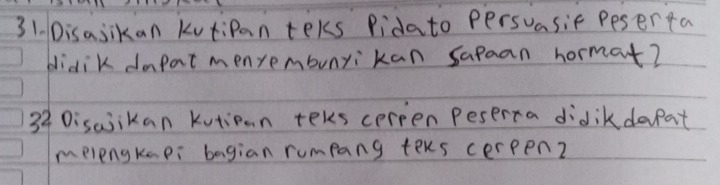 31. Disajikan kutipan teks Pidato Persuasif Peserta
didik dapat menyembunyikan sapaan hormat?
32 Disajikan kutipan teks cerpen Peserta didik dapat
melengkapi bagian rumpang teks cerpen?